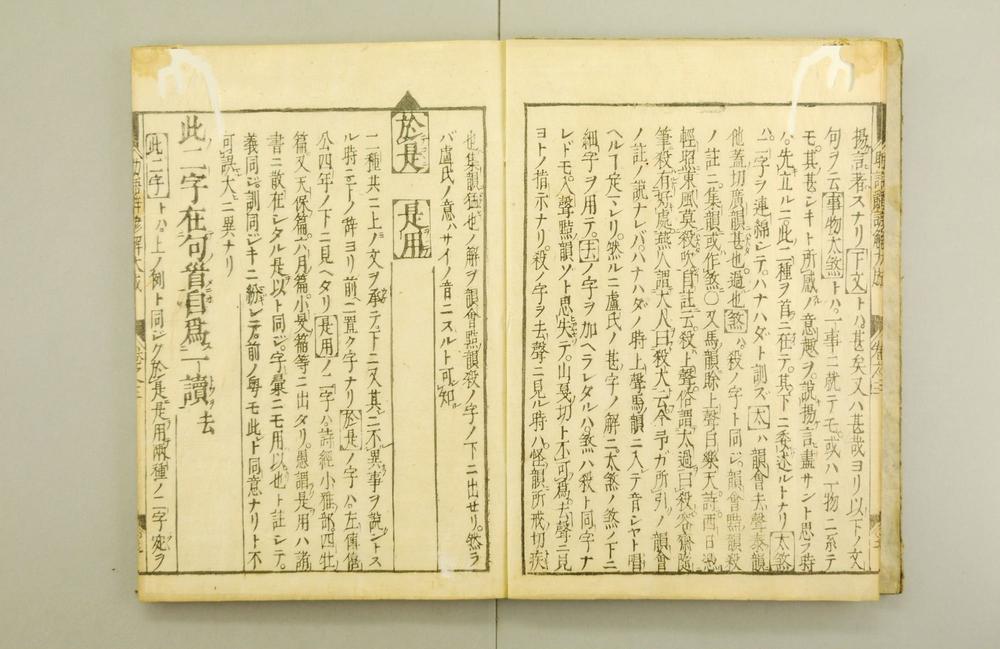 揚言者スナリ下文トハ甚矣又ハ甚哉ヨリ以下ノ文
句ヲ云事物太煞トハ一事ニ就テモ或ハ一物ニ系テ
モ其甚シキト所感ノ意趣ヲ説揚言盡サント思フ時
ハ先立ルニ此二種ヲ首ニ在テ其下ニ委述ルトナリ太煞
二字ヲ連綿シテハナハダト訓ズ太ハ韻會去聲泰韻
他蓋切廣韻甚也過也煞ハ殺ノ字ト同シ韻會黠韻殺
ノ註ニ集韻或作煞〇又禡韻除上聲白樂天詩西日憑
輕照東風莫殺吹自註云殺上聲俗謂太過曰殺容齋隨
筆殺有好處燕人謂大人曰殺大云今ガ所引ノ韻會
ノ註ノ説ナレバハナハダノ時上聲馬韻ニ入テ音シヤト唱
ヘルヿ定マレリ然ルニ盧氏ノ甚字ノ解ニ太煞ノ煞ノ下ニ
細字ヲ用テ去ノ字ヲ加ヘラレタルハ煞ハ殺ト同字ナ
レドモ入聲黠韻ゾト思失テ山戛切ト不可為去聲ニ見
ヨトノ指示ナリ殺ノ字ヲ去聲ニ見ル時ハ怪韻所戒切疾
也集韻狂也ノ解ヲ韻會黠韻殺ノ字ノ下ニ出セリ然ラ
バ盧氏ノ意ハサイノ音ニスルト可知
於是 是用
二種共ニ上ノ文ヲ承テ下ニ又其ニ不異事ヲ説ントス
ル時ニノ辞ヨリ前ニ置ク字ナリ於是ノ字ハ左傳僖
公四年ノ下ニ見ヘタリ是用ノ二字ハ詩經小雅部四牡
篇又天保篇六月篇小旻篇等ニ出タリ愚謂是用ハ諸
書ニ散在シタル是以ト同ジ字彙ニモ用以也ト註シテ
義同ジ訓同ジキニ紛レテ前ノ粤モ此ト同意ナリト不
可誤大ニ異ナリ
此二字在句首自爲一讀去
此二字トハ上ノ例ト同ジク於是是用兩種ノ二字宛ヲ